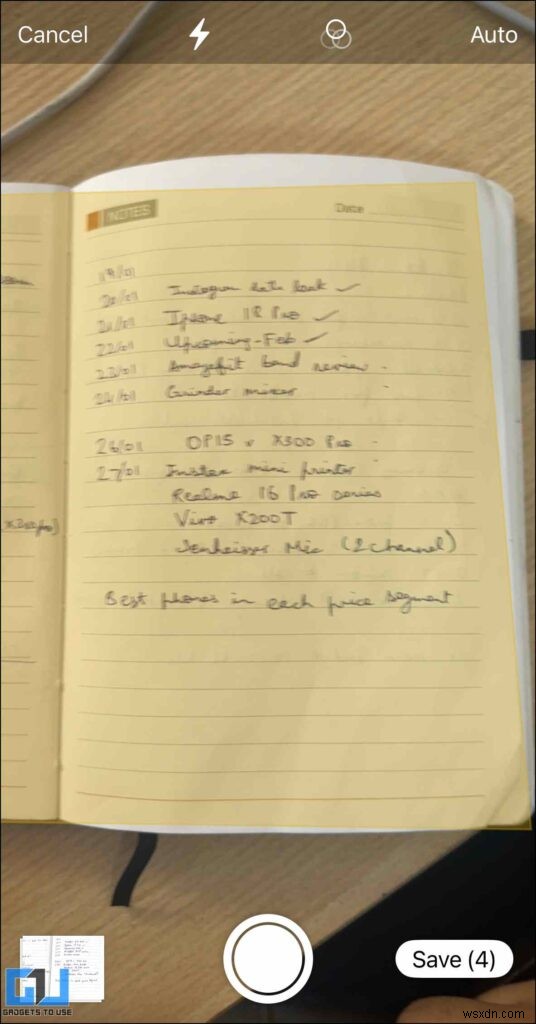 Cancel
Auto
NOTES
Date
19/01
20/01 Instagram data leak ✓
21/01 Iphone 18 Pro ✓
22/01 Upcoming - Feb ✓
23/01 Amazefit band review -
24/01 Grinder mixer
26/01 OP15 v X300 Pro -
27/01 Instax mini printer
Realme 16 Pro series
Vivo X200T
Senheisser Mic (2 channel)
Best phones in each price segment
Save (4)
GADGETS TO USE
wsxdn.com